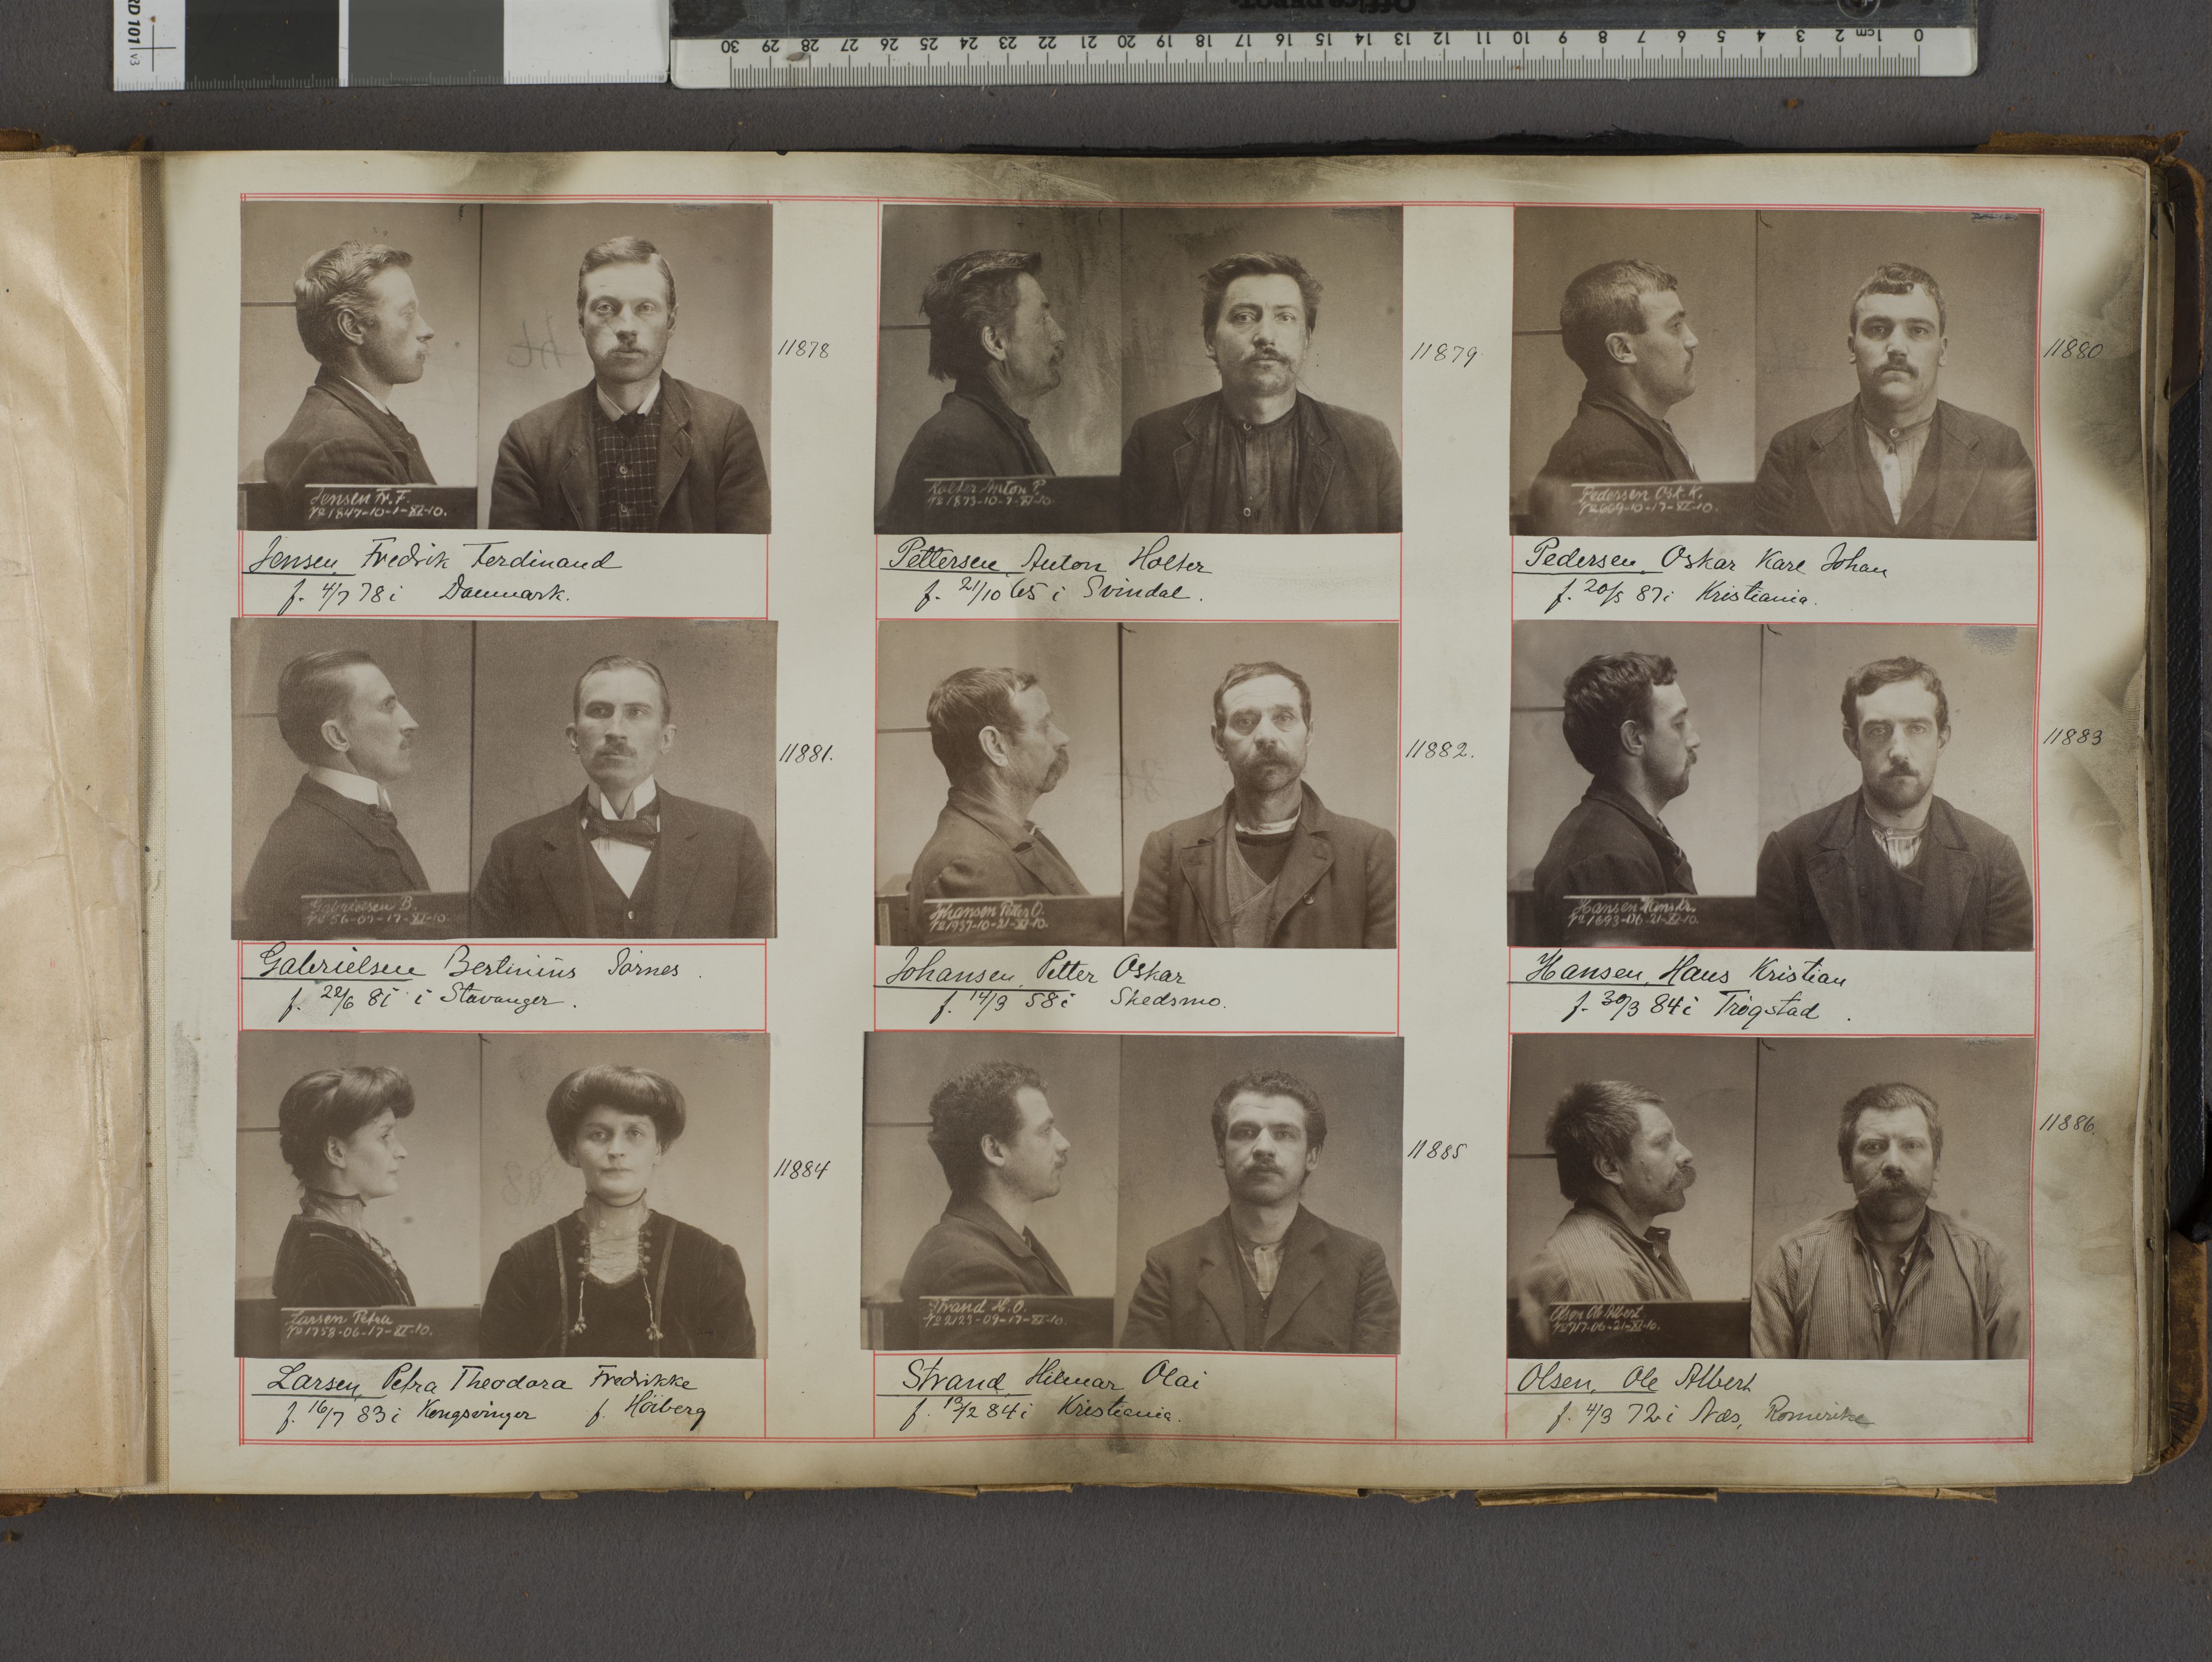 RD 101 v3
Office DEPOT
0 1cm 2 3 4 5 6 7 8 9 10 11 12 13 14 15 16 17 18 19 20 21 22 23 24 25 26 27 28 29 30
Jensen Fr. F.
No 1847-10-1-XI-10.
11878
Jensen, Fredrik Ferdinand
f. 4/7 78 i Danmark.
Holter Anton P.
No 1873-10-7-XI-10.
11879
Pettersen, Anton Holter
f. 21/10 65 i Svindal.
Pedersen Osk. K.
No 669-10-17-XI-10.
11880
Pedersen, Oskar Karl Johan
f. 20/5 87 i Kristiania.
Gabrielsen B.
No 56-07-17-XI-10.
11881.
Gabrielsen Bertinius
f. 22/6 81 i Stavanger.
Johansen Petter O.
No 1937-10-21-XI-10.
11882.
Johansen, Petter Oskar
f. 14/9 58 i Skedsmo.
Hansen Hans Kr.
No 1693-06-21-XI-10.
11883
Hansen, Hans Kristian
f. 30/3 84 i Trøgstad.
Larsen Petra
No 1758-06-17-XI-10.
11884
Larsen, Petra Theodora Fredrikke
f. 16/7 83 i Kongsvinger f. Höiberg
Strand H. O.
No 2123-09-17-XI-10.
11885
Strand, Hilmar Olai
f. 13/2 84 i Kristiania.
Olsen Ole Albert
No 717-06-21-XI-10.
11886.
Olsen, Ole Albert
f. 4/3 72 i Næs, Romerike